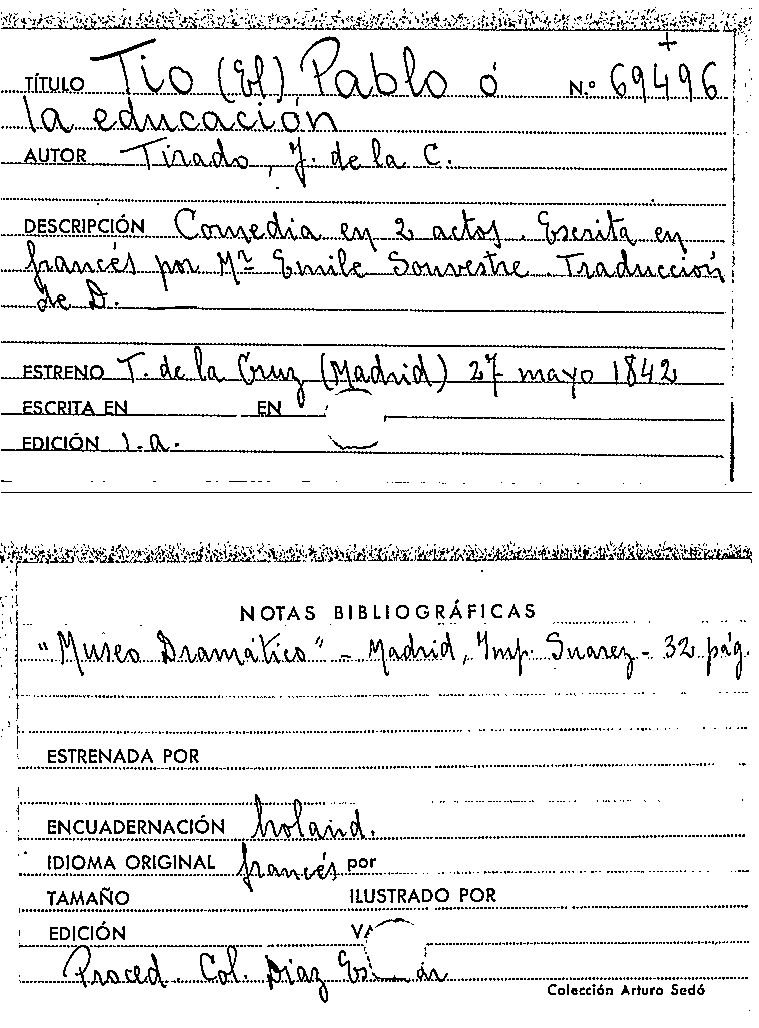 TÍTULO Tio (El) Pablo ó N.º 69496
la educación
AUTOR Tirado, J. de la C.
DESCRIPCIÓN Comedia en 2 actos. Escrita en
francés por Mr. Emile Souvestre. Traducción
de D.
ESTRENO T. de la Cruz (Madrid) 27 mayo 1842
ESCRITA EN EN
EDICIÓN 1.a.
NOTAS BIBLIOGRÁFICAS
"Museo Dramático" - Madrid, Imp. Suarez - 32 pág.
ESTRENADA POR
ENCUADERNACIÓN holand.
IDIOMA ORIGINAL francés por
TAMAÑO ILUSTRADO POR
EDICIÓN
Proced. Col. Diaz
Colección Arturo Sedó